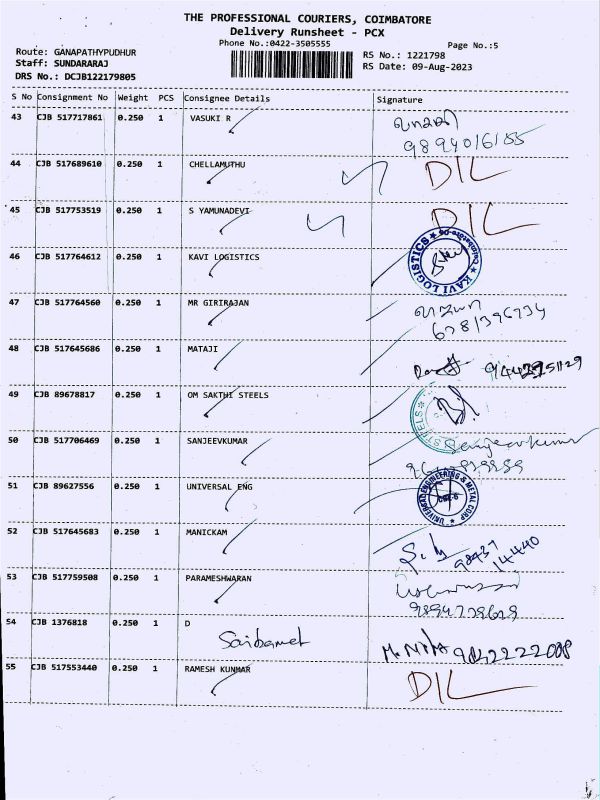 THE PROFESSIONAL COURIERS, COIMBATORE
Delivery Runsheet - PCX
Phone No.:0422-3505555
Page No.:5
Route: GANAPATHYPUDHUR
RS No.: 1221798
Staff: SUNDARARAJ
RS Date: 09-Aug-2023
DRS No.: DCJB122179805
S No Consignment No Weight PCS Consignee Details Signature
43 CJB 517717861 0.250 1 VASUKI R
44 CJB 517689610 0.250 1 CHELLAMUTHU DIL
45 CJB 517753519 0.250 1 S YAMUNADEVI DIL
46 CJB 517764612 0.250 1 KAVI LOGISTICS KAVI LOGISTICS
47 CJB 517764560 0.250 1 MR GIRIRAJAN
48 CJB 517645686 0.250 1 MATAJI
49 CJB 89678817 0.250 1 OM SAKTHI STEELS STEELS
50 CJB 517706469 0.250 1 SANJEEVKUMAR Sanjeevkumar
51 CJB 89627556 0.250 1 UNIVERSAL ENG UNIVERSAL ENGINEERING & METAL CORP
52 CJB 517645683 0.250 1 MANICKAM 98437
14440
53 CJB 517759508 0.250 1 PARAMESHWARAN
54 CJB 1376818 0.250 1 D
55 CJB 517553440 0.250 1 RAMESH KUNMAR DIL